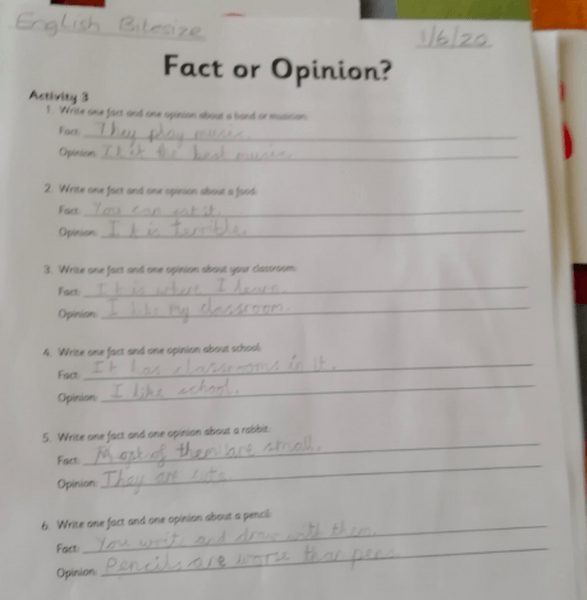 English Bitesize
1/6/20
Fact or Opinion?
Activity 3
1. Write one fact and one opinion about a band or musician:
Fact: They play music.
Opinion: It is the best music.
2. Write one fact and one opinion about a food:
Fact: You can eat it.
Opinion: It is terrible.
3. Write one fact and one opinion about your classroom:
Fact: It is where I learn.
Opinion: I like my classroom.
4. Write one fact and one opinion about school:
Fact: It has classrooms in it.
Opinion: I like school.
5. Write one fact and one opinion about a rabbit:
Fact: Most of them are small.
Opinion: They are cute.
6. Write one fact and one opinion about a pencil:
Fact: You write and draw with them.
Opinion: Pencils are worse than pens.